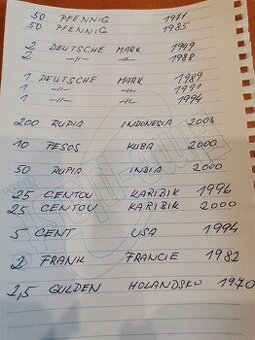 50 PFENNIG 1971
50 PFENNIG 1985
2 DEUTSCHE MARK 1949
2 -11- -11- 1988
1 DEUTSCHE MARK 1989
1 -11- -11- 1991
1 -11- -11- 1994
200 RUPIA INDONESIA 2003
10 PESOS KUBA 2000
50 RUPIA INDIA 2000
25 CENTOU KARIBIK 1996
25 CENTOU KARIBIK 2000
5 CENT USA 1994
2 FRANK FRANCIE 1982
2,5 GULDEN HOLANDSKO 1970